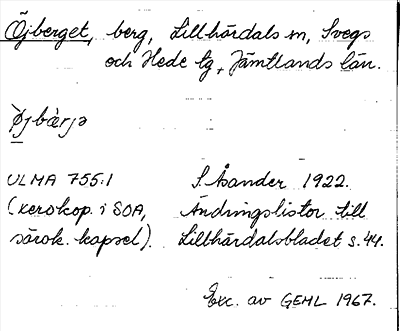 Öjberget, berg, Lillhärdals sn, Svegs
och Hede tg, Jämtlands län.
Øjbærjə
ULMA 755:1 S. Åsander 1922.
(xerokop. i SOA, Ändringslistor till
särsk. kapsel). Lillhärdalsbladet s. 44.
Exc. av GEHL 1967.